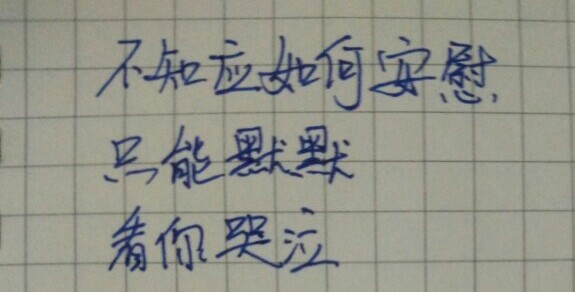 不知应如何安慰
只能默默
看你哭泣